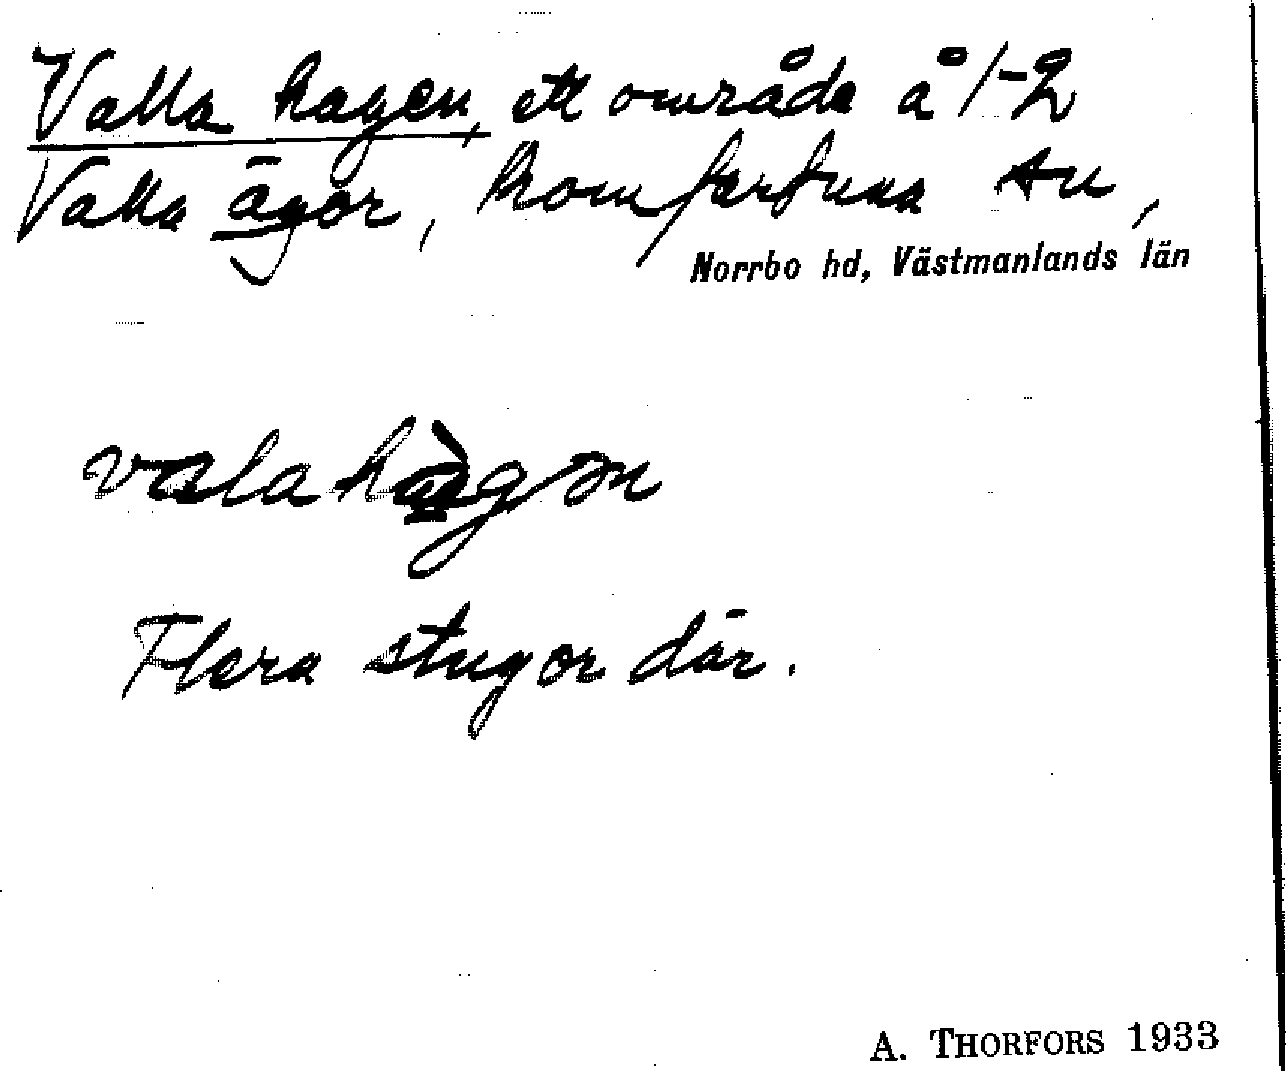 Valla hagen, ett område å 1-2
Valla ägor, Romfartuna sn,
Norrbo hd, Västmanlands län
vala hàgen
Flera stugor där.
A. THORFORS 1933